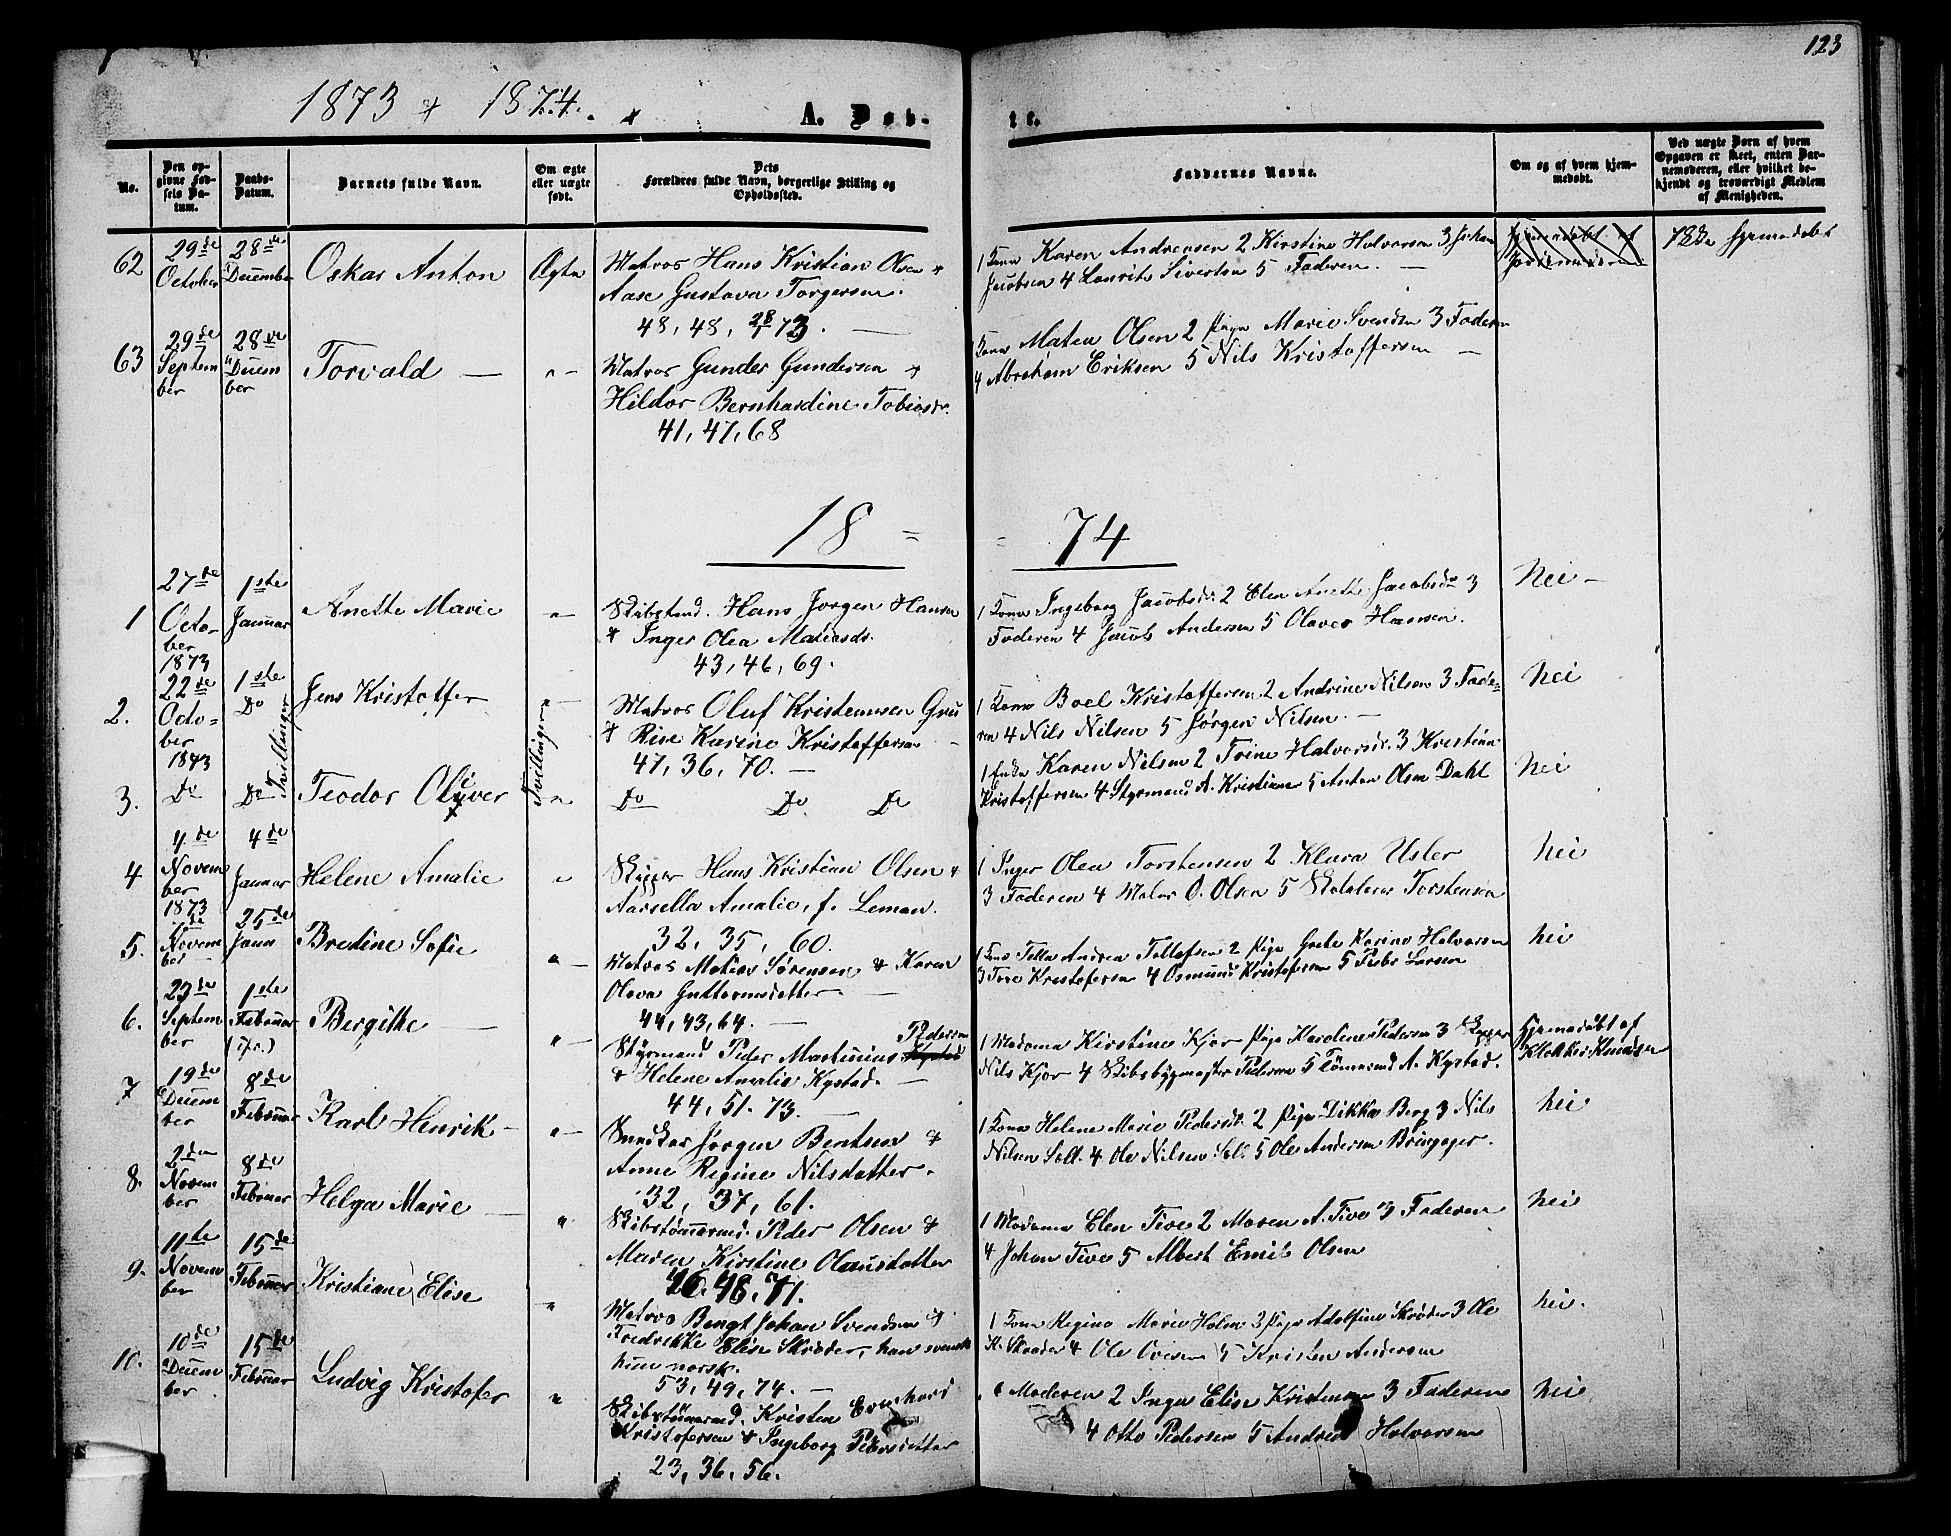 123
1873 & 1874.
A. Døb-
te.
No.
Den op-
givne Fød-
sels Da-
tum.
Daabs-
Datum.
Barnets fulde Navn.
Om ægte
eller uægte
født.
Dets
Forældres fulde Navn, borgerlige Stilling og
Opholdssted.
Faddernes Navne.
Om og af hvem hjem-
medøbt.
Ved uægte Børn af hvem
Opgaven er skeet, enten Bar-
nemoderen, eller hvilket be-
kjendt og troværdigt Medlem
af Menigheden.
62
29de
October
28de
December
Oskar Anton
Ægte
Matros Hans Kristian Olsen &
Aase Gustava Torgersen.
48, 48, 73.
1 Kone Karen Andreasen 2 Kirstine Halvorsen 3 Johan
Jacobsen 4 Laurits Sivertsen 5 Faderen. —
Hjemmedøbt af
Hjemmedøbt
63
29de
Septem
ber
28de
Decem
ber
Torvald —
" —
Matros Gunder Gundersen &
Hilda Bernhardine Tobiasdr.
41, 47, 68
1 Kone Maten Olsen 2 Pige Marie Svendsen 3 Faderen
4 Abraham Eriksen 5 Nils Kristoffersen —
18 =
= 74
1
27de
Octo-
ber
1873
1ste
Januar
Anette Marie
" —
Skibstmd. Hans Jørgen Hansen
& Inger Olea Matiasdr.
43, 46, 69.
1 Kone Ingeborg Jacobsdr. 2 Elen Anette Jacobsdr 3
Faderen 4 Jacob Andersen 5 Olaves Hansen.
Nei —
2.
22de
Octo-
ber
1873
1ste
Do
Jens Kristoffer
" —
Matros Oluf Kristensen Gru
& Rise Karine Kristoffersen —
47, 36, 70. —
1 Kone Boel Kristoffersen 2 Andrine Nilsen 3 Fade-
ren 4 Nils Nilsen 5 Jørgen Nilsen. —
Nei
3.
Do
Do
Tvillinger
Teodor Oliver
Tvillinger
" —
Do Do. Do
1 Enke Karen Nilsen 2 Trine Halvorsdr. 3 Kristian
Kristoffersen 4 Styrmand A. Kristiansen 5 Anton Olsen Dahl
Nei
4
4de
Novem
ber
1873
4de
Januar
Helene Amalie
"
Skipper Hans Kristian Olsen &
Aarsella Amalie, f. Leman.
32, 35, 60.
1 Inger Olea Torstensen 2 Klara Usler
3 Faderen 4 Matros O. Olsen 5 Torstensen
Nei
5.
Novem
ber
25de
Jann
Bredine Sofie
" —
Matros Matias Sørensen & Karen
Olava Guttormsdatter —
44, 43, 64. —
1 Kone Tella Andrea Tollefsen 2 Pige Grete Karine Halvorsen
3 Tore Kristofersen 4 Osmund Kristofersen 5 Peder Larsen
Nei
6.
23de
Septem
ber
1ste
Februar
Bergithe —
" —
Styrmand Peder Martinius Pedersen
& Helene Amalie Kystad. —
44, 51. 73. —
1 Madame Kirstine Kjør Pige Karoline Pedersen 3 Skipper
Nils Kjør 4 Skibsbygmester Pedersen 5 Tømmermd A. Kystad.
Hjemmedøbt af
Klokker Knudsen
7
19de
Decem
ber
8de
Februar
Karl Henrik —
" —
Snedker Jørgen Bentsen &
Anne Regine Nilsdatter.
32, 37, 61.
1 Kone Helene Marie Pedersdr 2 Pige Dikka Berg 3 Nils
Nilsen Solb. 4 Ole Nilsen Solb. 5 Ole Andersen Bringager.
Nei
8.
2den
Novem
ber
8de
Februar
Helga Marie —
"
Skibstømmermd. Peder Olsen &
Maren Kirstine Olausdatter
46. 48, 71.
1 Madame Elen Tive 2 Maren A. Tive 3 Faderen
4 Johan Tive 5 Albert Emil Olsen
Nei
9.
11te
Novem
ber
15de
Februar
Kristiane Elise
"
Matros Bengt Johan Svendsen &
Fredrikke Elise Skrøder, han svensk
hun norsk.
53, 49, 74. —
1 Kone Regine Marie Holm 2 Pige Adolfine Skrøder 3 Ole
K. Skrøder 4 Ole Ovesen 5 Kristen Andersen
Nei.
10.
10de
Decem
ber
15de
Februar
Ludvig Kristofer
"
Skibstømmermd. Kristen Evenhard
Kristofersen & Ingeborg Pedersdatter
23, 36, 56.
Moderen 2 Inga Elise Kristensen 3 Faderen
4 Otto Pedersen 5 Andreas Halvorsen
Nei